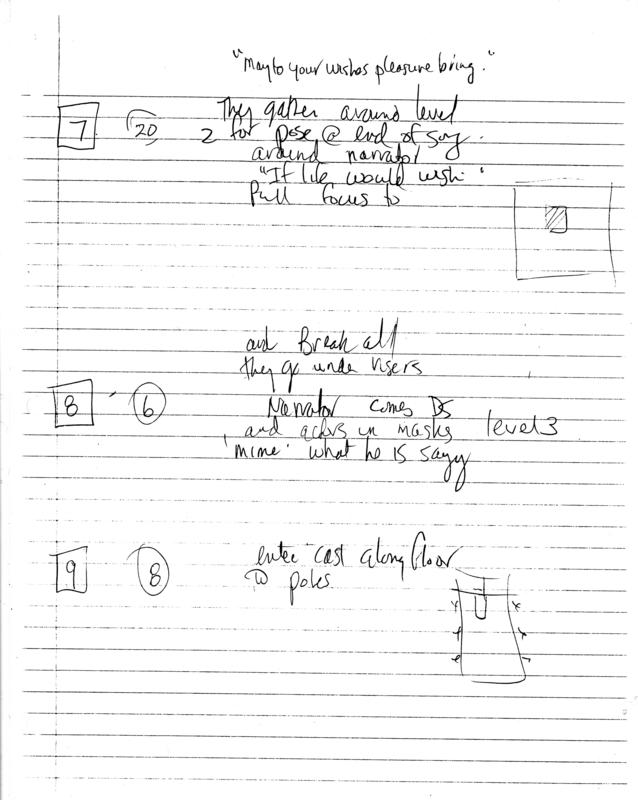 "May to your wishes pleasure bring."
They gather around level
7 20 2 for pose @ end of song.
around narrator
"If life would wish"
Pull focus to
and Break all
they go under risers
8 6 Narrator comes DS
and actors in masks level 3
'mime' what he is sayg
9 8 enter cast along floor
to poles.